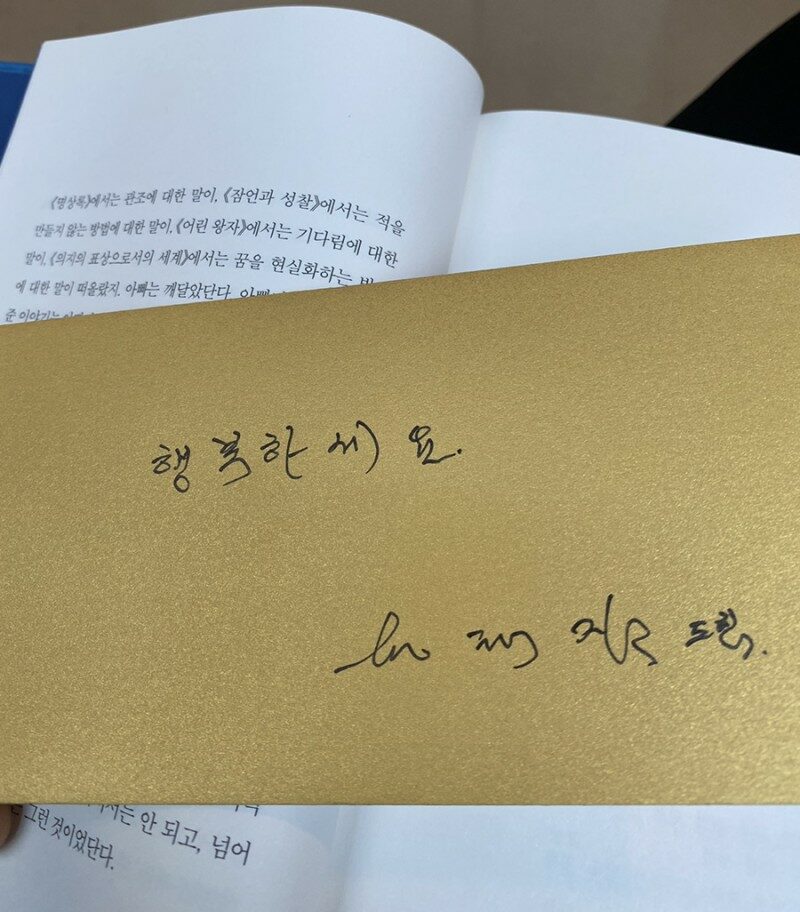 《명상록》에서는 관조에 대한 말이, 《잠언과 성찰》에서는 적을
만들지 않는 방법에 대한 말이, 《어린 왕자》에서는 기다림에 대한
말이, 《의지의 표상으로서의 세계》에서는 꿈을 현실화하는
에 대한 말이 떠올랐지. 아빠는 깨달았단다.
준 이야기는
행복하세요.
드림.
안 되고, 넘어
그런 것이었단다.